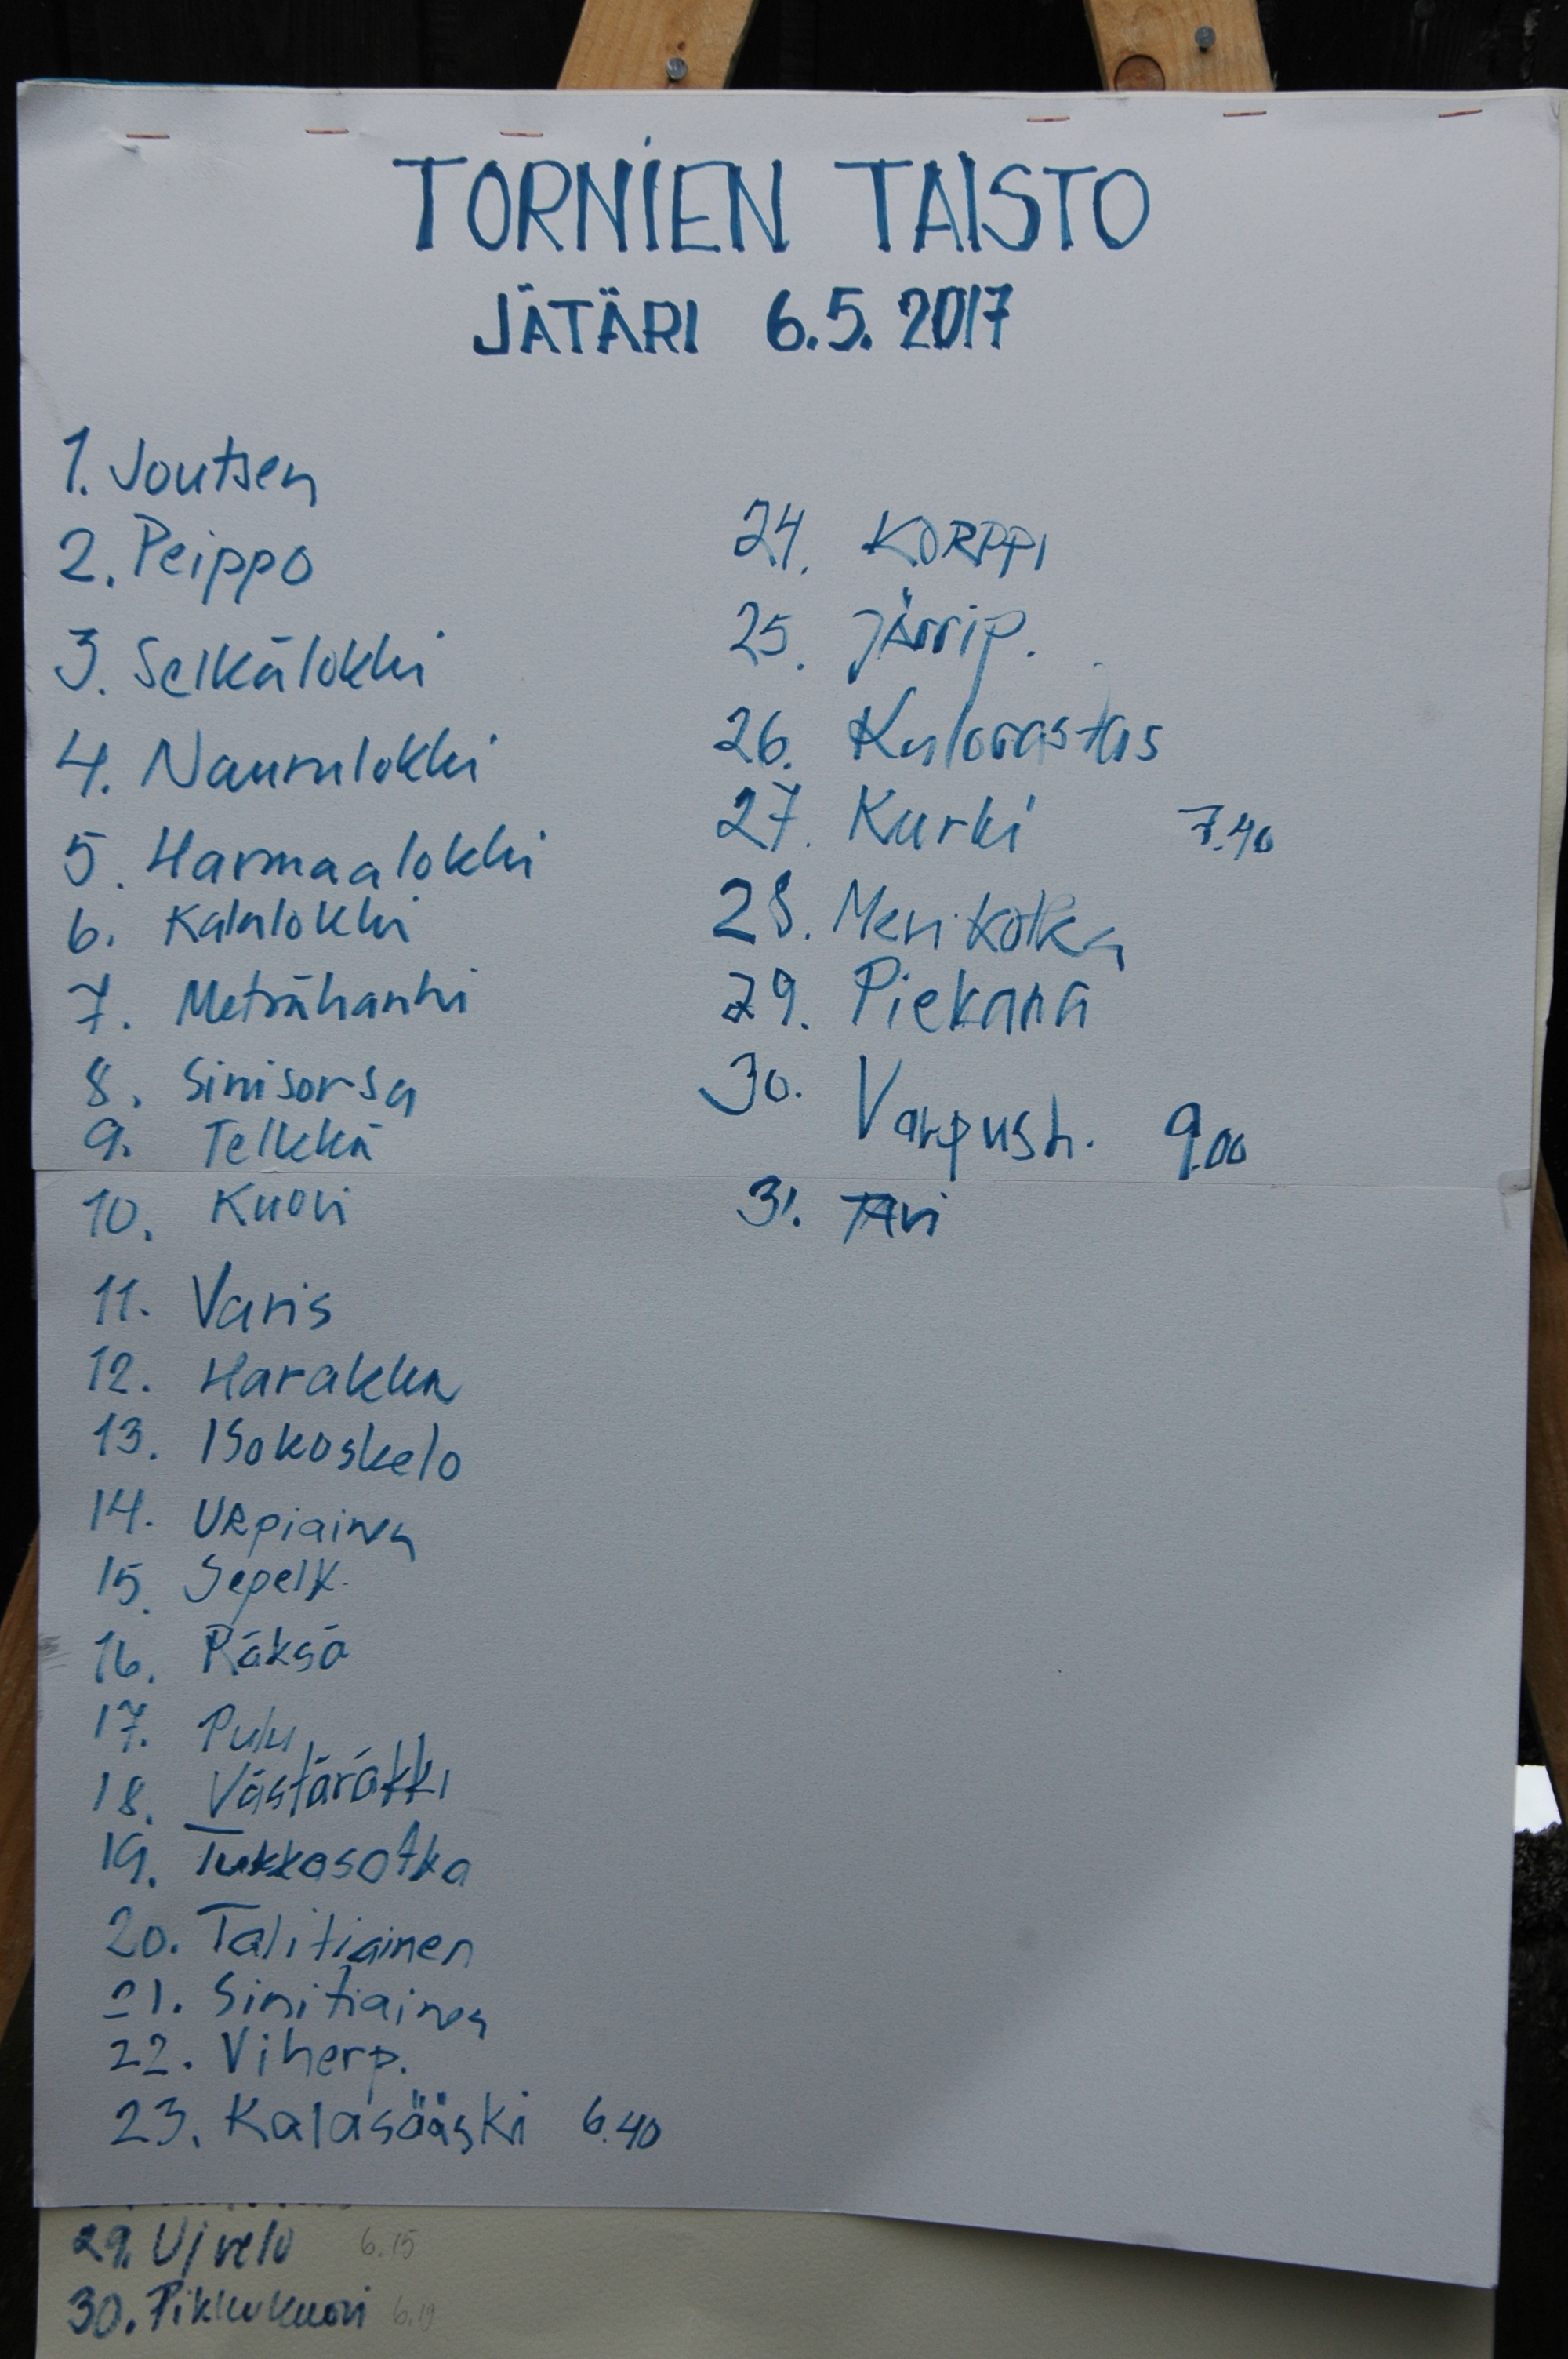 TORNIEN TAISTO
JÄTÄRI 6.5.2017
1. Joutsen
2. Peippo
3. Selkälokki
4. Naurulokki
5. Harmaalokki
6. Kalalokki
7. Metsähanhi
8. Sinisorsa
9. Telkkä
10. Kuovi
11. Varis
12. Harakka
13. Isokoskelo
14. URpiainen
15. Sepelk.
16. Räksä
17. Pulu
18. Västäräkki
19. Tukkasotka
20. Talitiainen
21. Sinitiainen
22. Viherp.
23. Kalasääski 6.40
24. KORPPI
25. Järrip.
26. Kulorastas
27. Kurki 7.40
28. Merikotka
29. Piekana
30. Varpush. 9.00
31. TAvi
29. Ujvelo 6.15
30. Pikkukuovi 6.19